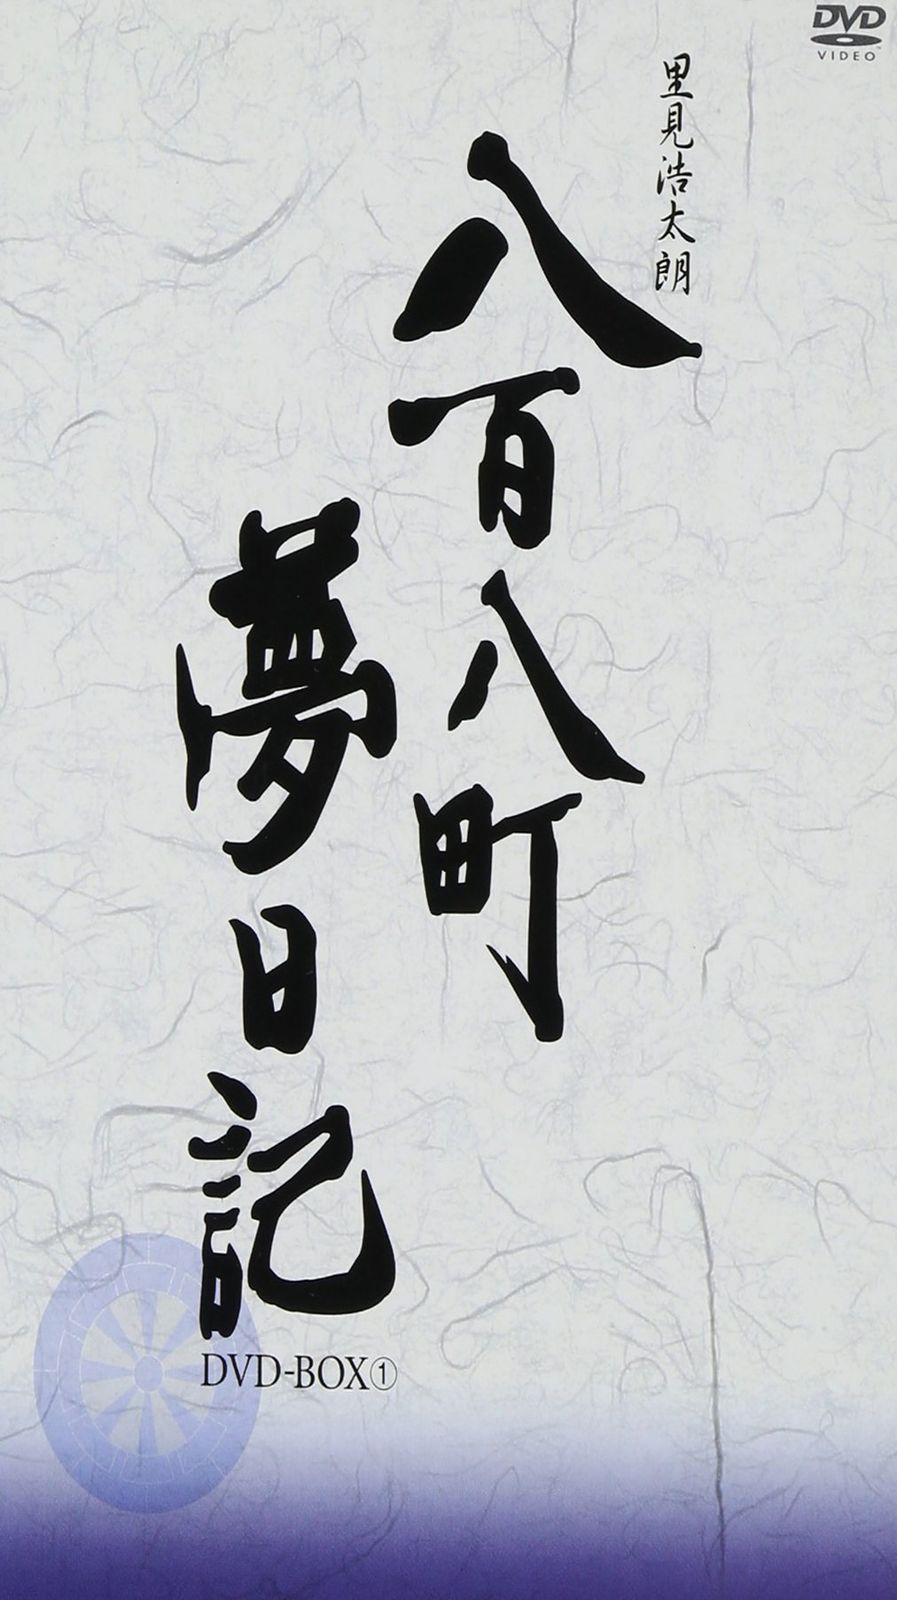 DVD
VIDEO
里見浩太朗
八百八町
夢日記
DVD-BOX①